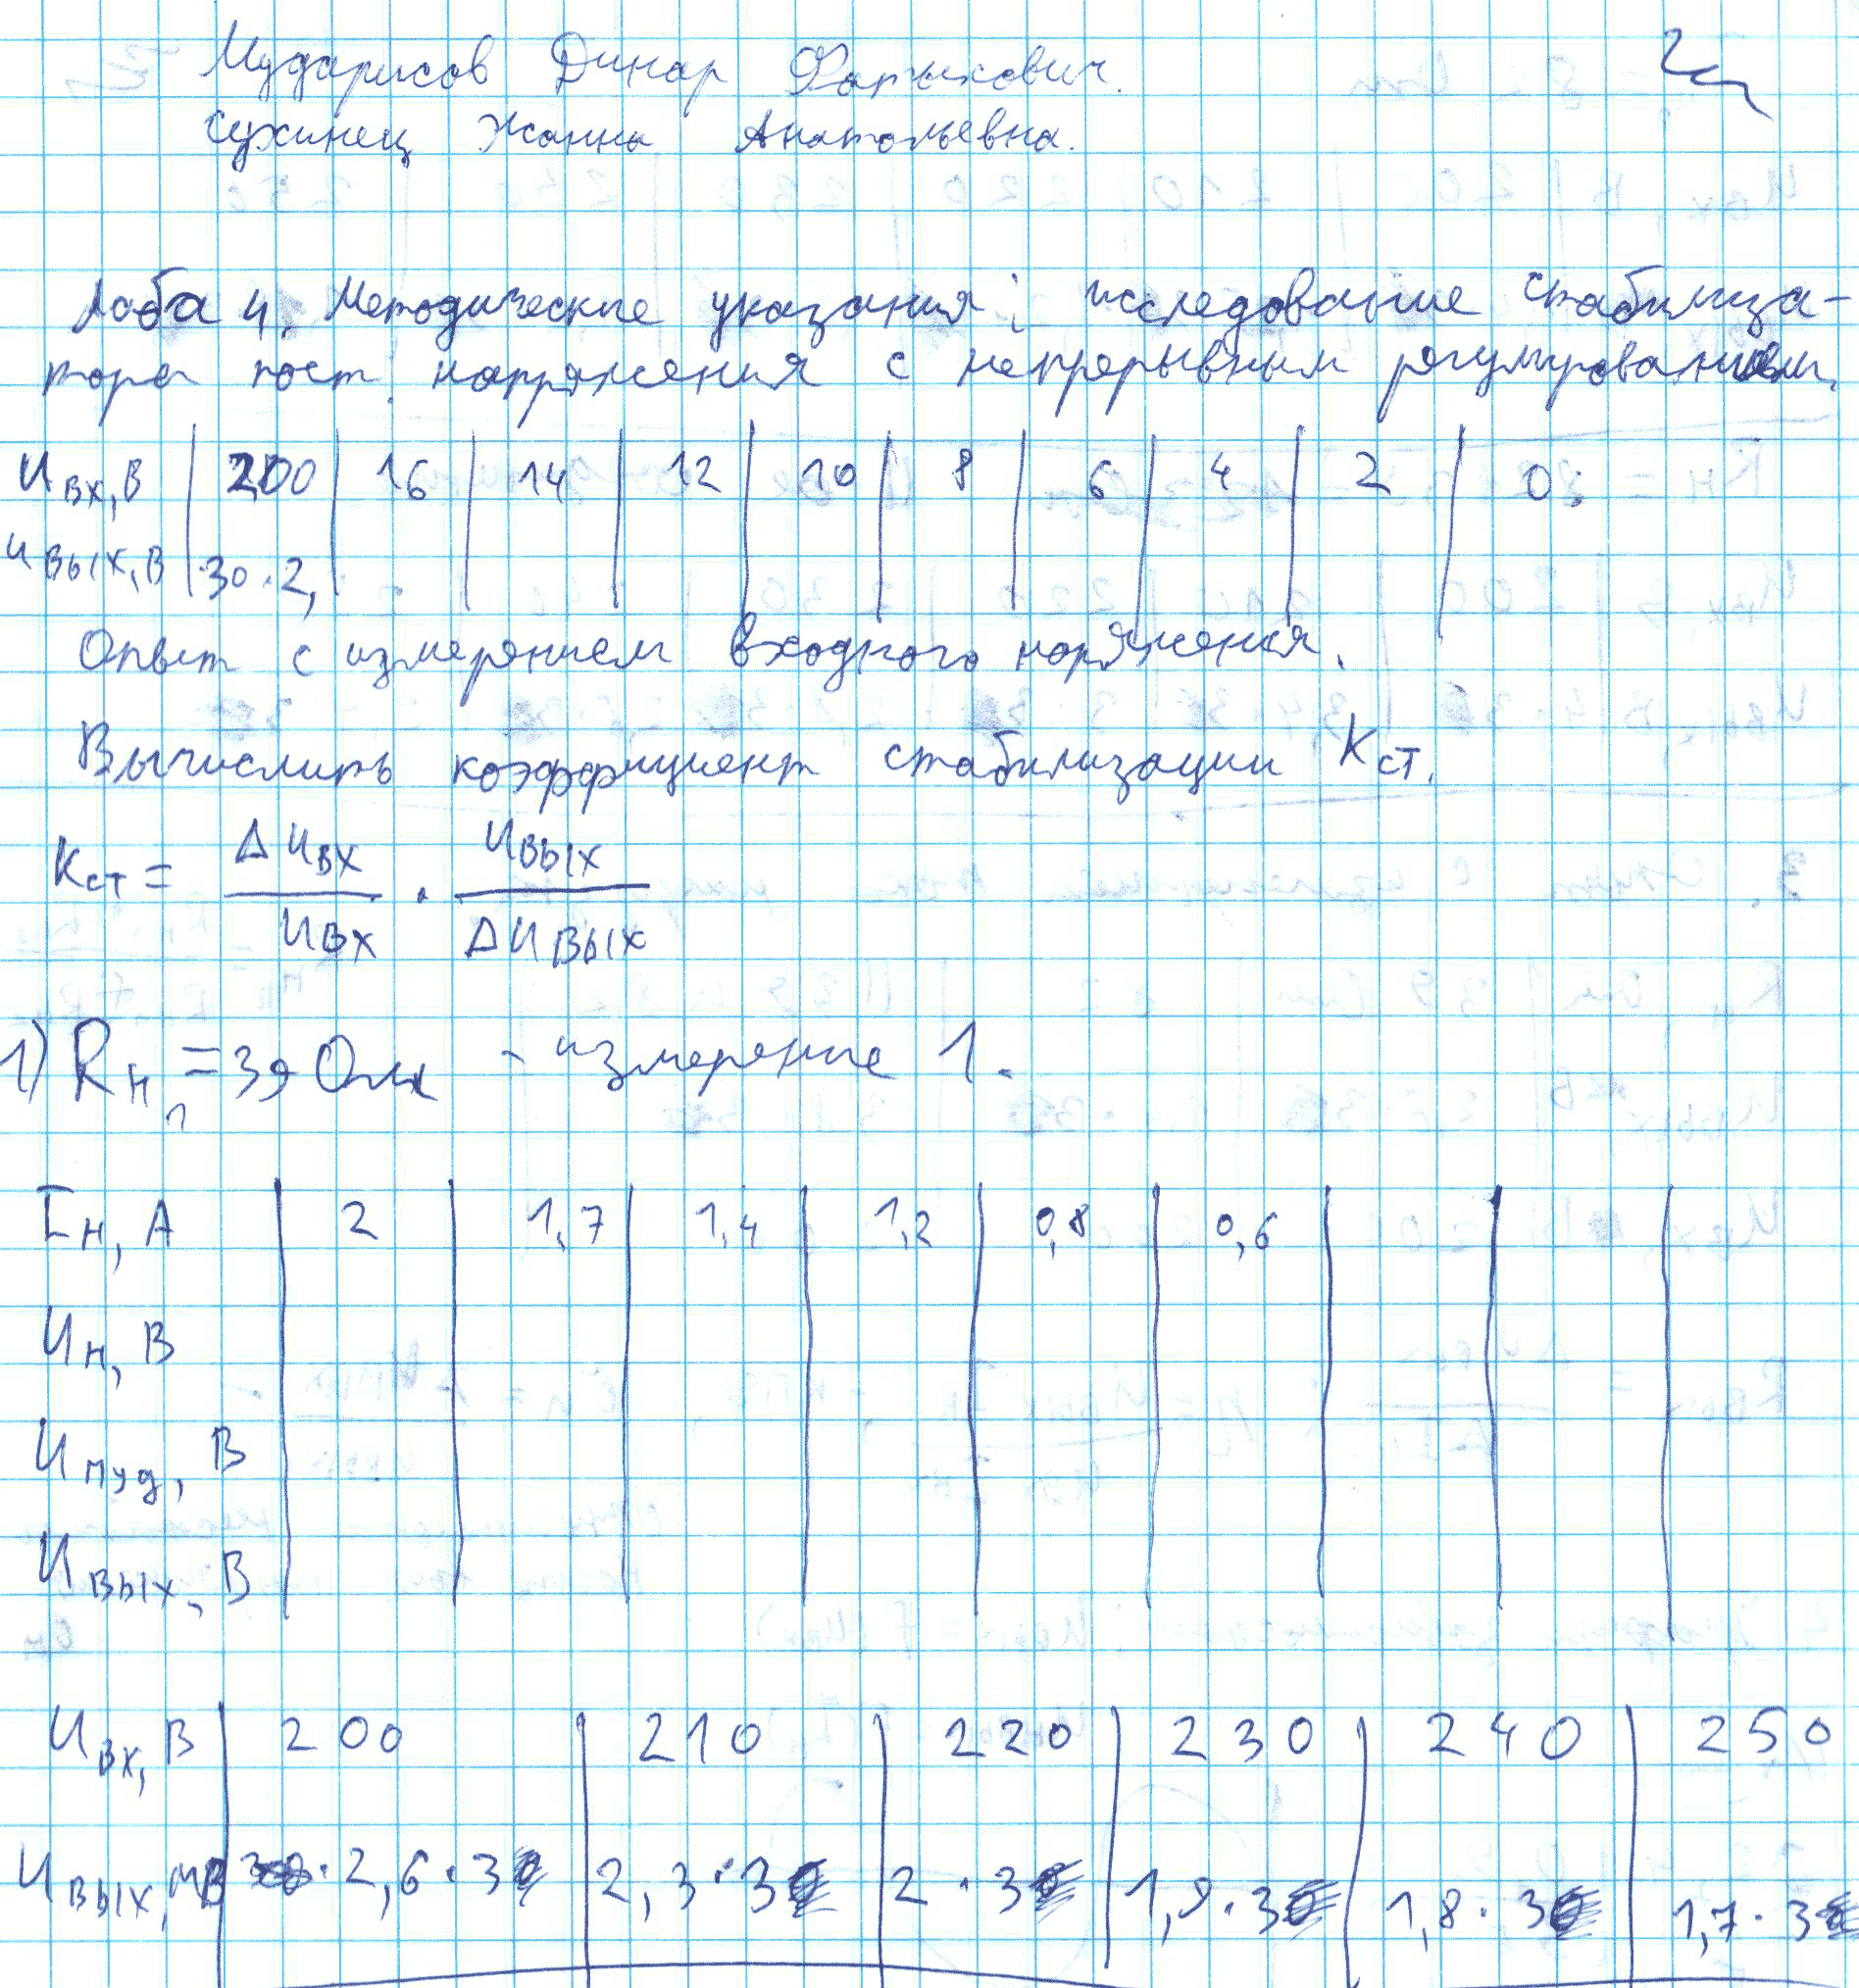 Мударисов Динар Фатыхович.
Сухинец Жанна Анатольевна.
Лаба 4. Методические указания: исследование стабилиза-
тора пост. напряжения с непрерывным регулированием.
Uвх, В | 200 | 16 | 14 | 12 | 10 | 8 | 6 | 4 | 2 | 0
Uвых, В | 30 · 2,
Опыт с измерением входного наряжения.
Вычислить коэффициент стабилизации Kст.
Kст = ΔUвх / Uвх · Uвых / ΔUвых
1) Rн = 39 Ом - измерение 1.
Iн, А | 2 | 1,7 | 1,4 | 1,2 | 0,8 | 0,6
Uн, В
Uпуд, В
Uвых, В
Uвх, В | 200 | 210 | 220 | 230 | 240 | 250
Uвых, мВ | 2,6 · 3 | 2,3 · 3 | 2 · 3 | 1,9 · 3 | 1,8 · 3 | 1,7 · 3